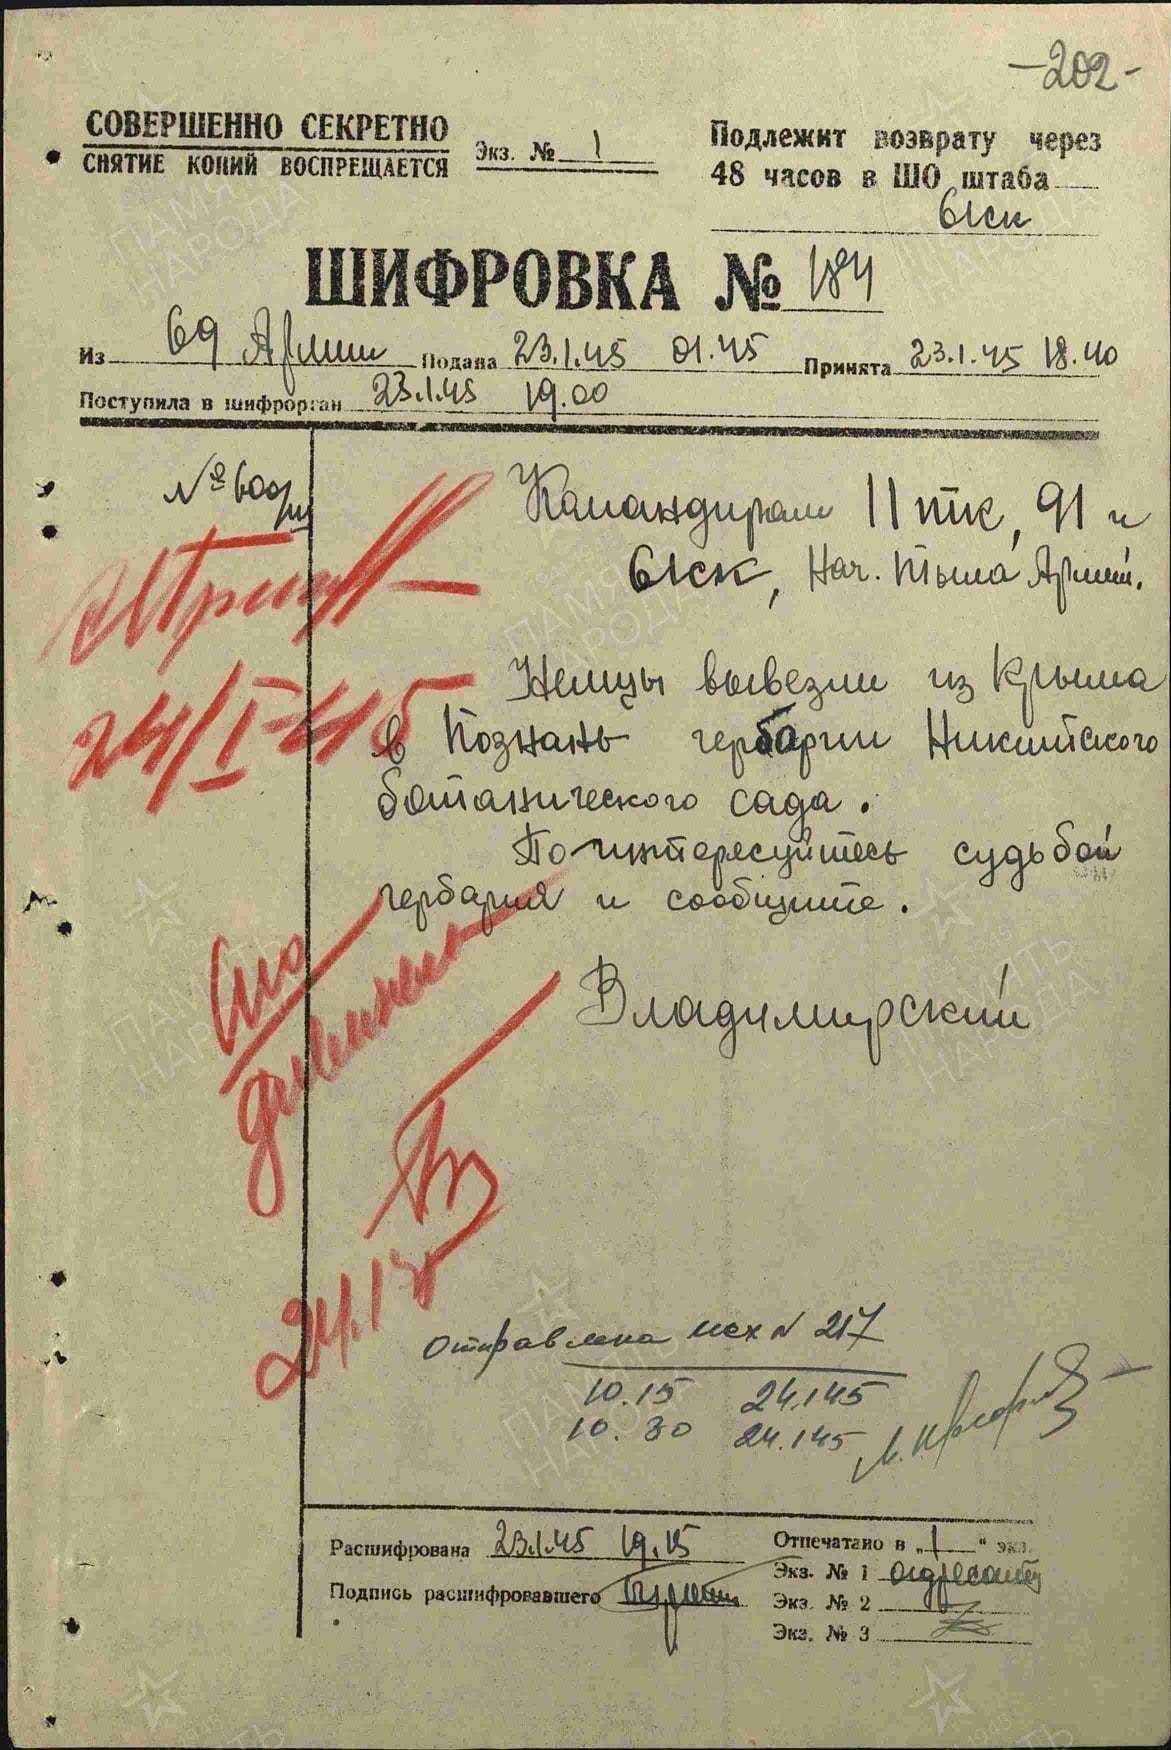 -202-
СОВЕРШЕННО СЕКРЕТНО
СНЯТИЕ КОПИЙ ВОСПРЕЩАЕТСЯ
Экз. № 1
Подлежит возврату через
48 часов в ШО штаба
61ск
ШИФРОВКА № 184
Из 69 Армии Подана 23.1.45 01.45 Принята 23.1.45 18.40
Поступила в шифрорган 23.1.45 19.00
№600/ш
Командирам 11 тк, 91 и
61ск, Нач. Тыла Армии.
24/I-45
Немцы вывезли из Крыма
в Познань гербарии Никитского
ботанического сада.
Поинтересуйтесь судьбой
гербария и сообщите.
Владимирский
24.1
Отправлена исх N 217
10.15 24.1.45
10.30 24.1.45
Расшифрована 23.1.45 19.15
Подпись расшифровавшего
Отпечатано в „1" экз.
Экз. № 1 адресату
Экз. № 2
Экз. № 3
ПАМЯТЬ НАРОДА